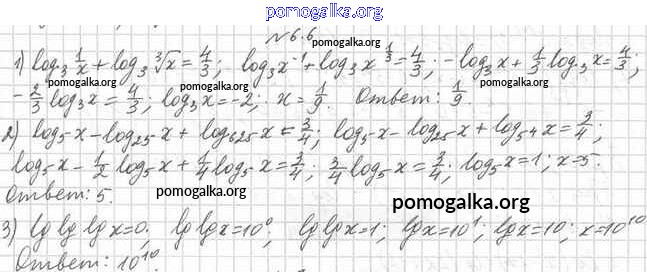 pomogalka.org
№6.6
pomogalka.org
1) log₃ 1/x + log₃ ∛x = 4/3; log₃x⁻¹ + log₃x^(1/3) = 4/3; -log₃x + 1/3 log₃x = 4/3;
pomogalka.org pomogalka.org
-2/3 log₃x = 4/3; log₃x = -2; x = 1/9. Ответ: 1/9.
2) log₅x - log₂₅x + log₆₂₅x = 3/4; log₅x - log₂₅x + log₅⁴x = 3/4;
log₅x - 1/2 log₅x + 1/4 log₅x = 3/4; 3/4 log₅x = 3/4; log₅x = 1; x = 5.
Ответ: 5. pomogalka.org
pomogalka.org
3) lg lg lg x = 0; lg lg x = 10⁰; lg lg x = 1; lg x = 10¹; lg x = 10; x = 10¹⁰
Ответ: 10¹⁰ pomogalka.org